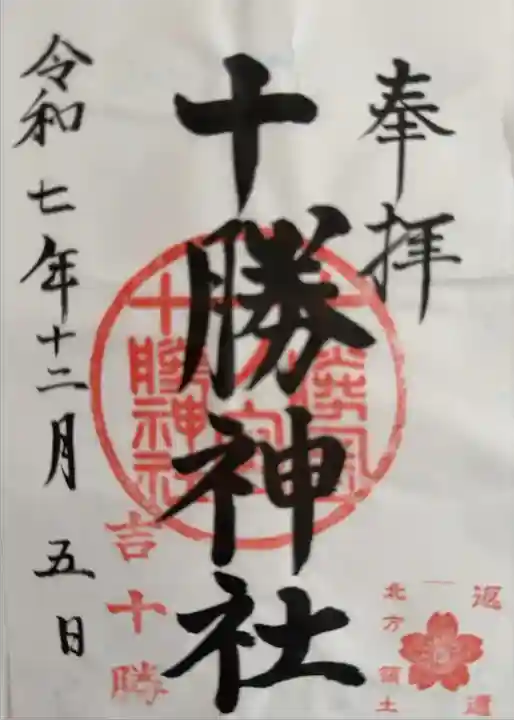 奉拝
十勝神社
令和七年十二月五日
十勝神社
吉十勝
一
北方領土
返還